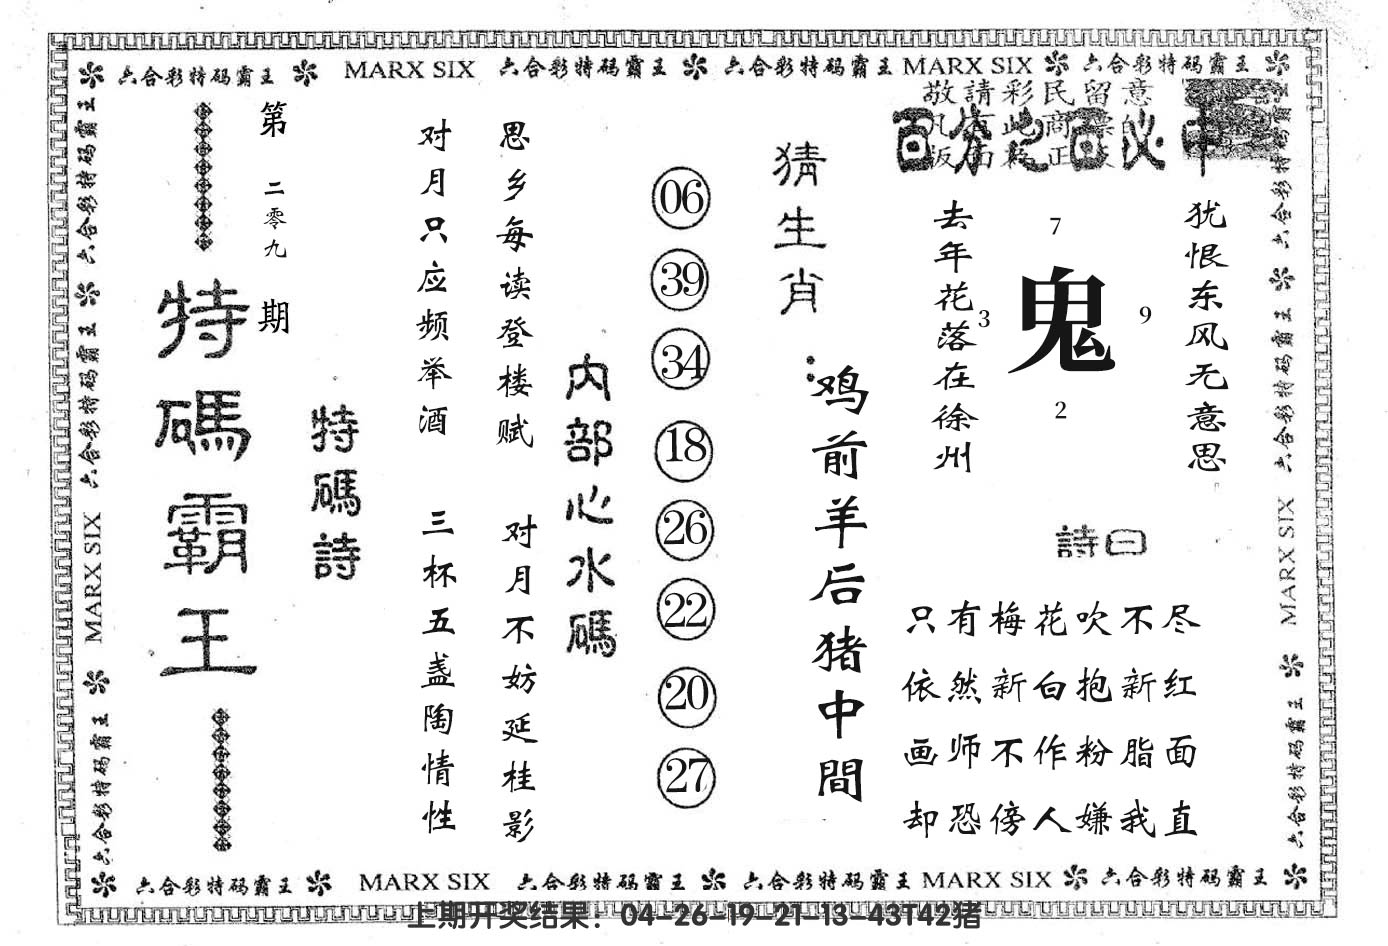 六合彩特码霸王 MARX SIX 六合彩特码霸王 六合彩特码霸王 MARX SIX 六合彩特码霸王
敬請彩民留意
百分之百必中
犹恨东风无意思
去年花落在徐州
7
3 鬼 9
2
詩曰
只有梅花吹不尽
依然新白抱新红
画师不作粉脂面
却恐傍人嫌我直
猜生肖:
鸡前羊后猪中間
06
39
34
18
26
22
20
27
内部心水碼
思乡每读登楼赋 对月不妨延桂影
对月只应频举酒 三杯五盏陶情性
特碼詩
第二零九期
特碼霸王
六合彩特码霸王 六合彩特码霸王 MARX SIX 六合彩特码霸王
六合彩特码霸王 六合彩特码霸王 MARX SIX 六合彩特码霸王
六合彩特码霸王 MARX SIX 六合彩特码霸王 六合彩特码霸王 MARX SIX 六合彩特码霸王
上期开奖结果：04-26-19-21-13-43T42猪